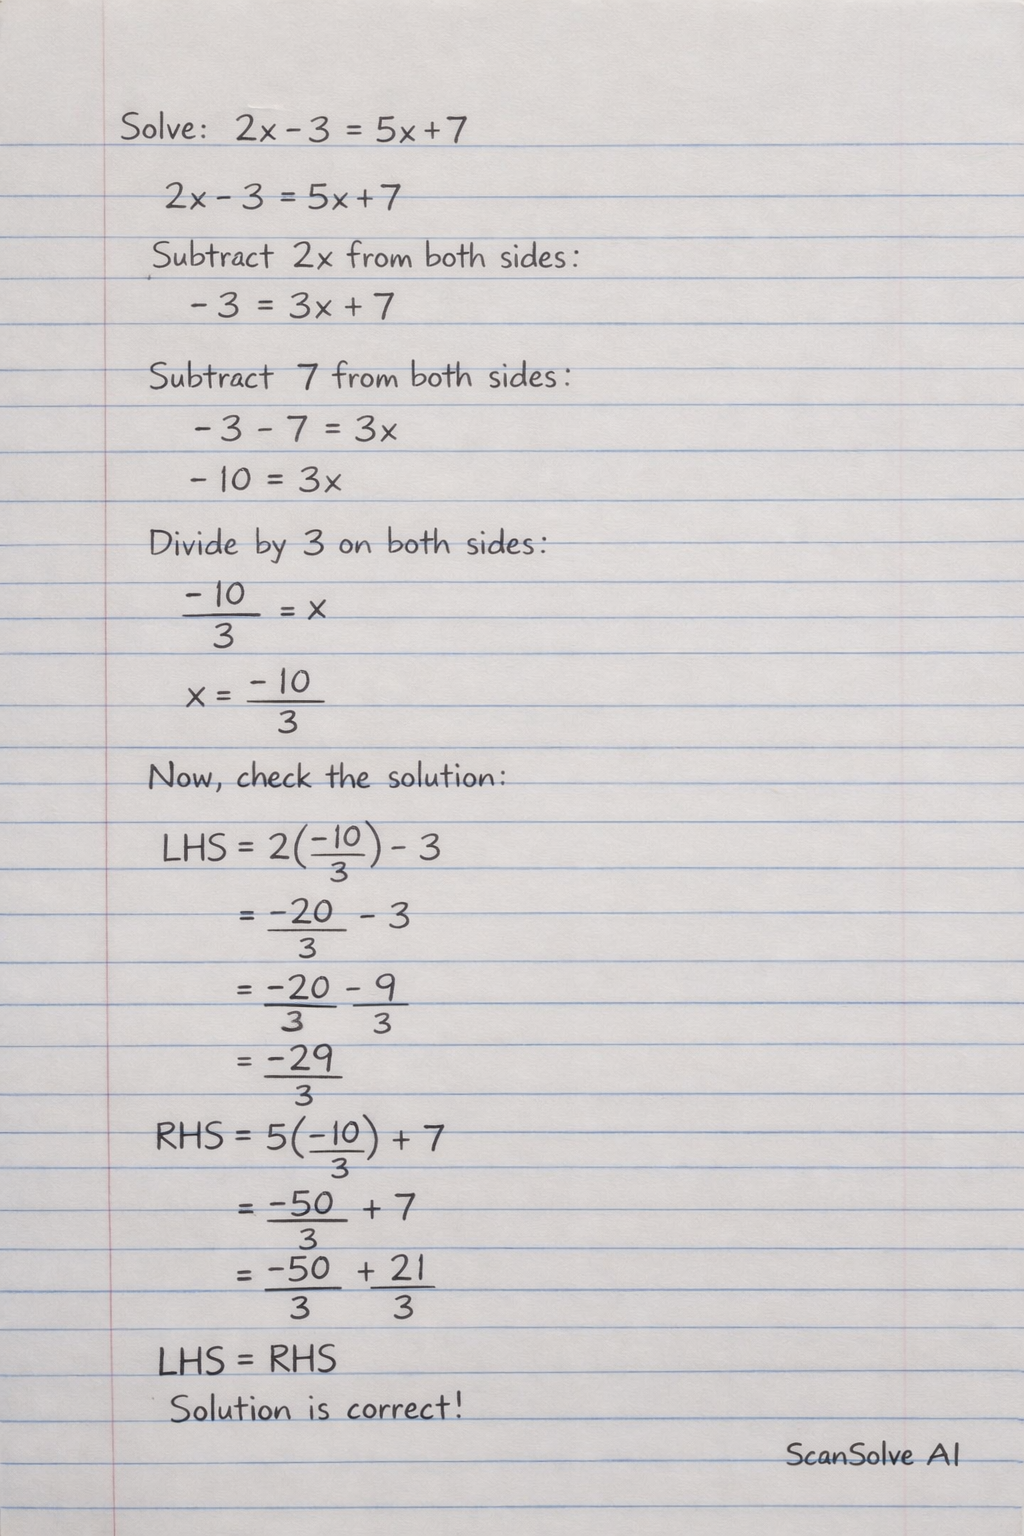 Solve: 2x - 3 = 5x + 7
2x - 3 = 5x + 7
Subtract 2x from both sides:
- 3 = 3x + 7
Subtract 7 from both sides:
- 3 - 7 = 3x
- 10 = 3x
Divide by 3 on both sides:
-10/3 = x
x = -10/3
Now, check the solution:
LHS = 2(-10/3) - 3
= -20/3 - 3
= -20/3 - 9/3
= -29/3
RHS = 5(-10/3) + 7
= -50/3 + 7
= -50/3 + 21/3
LHS = RHS
Solution is correct!
ScanSolve AI